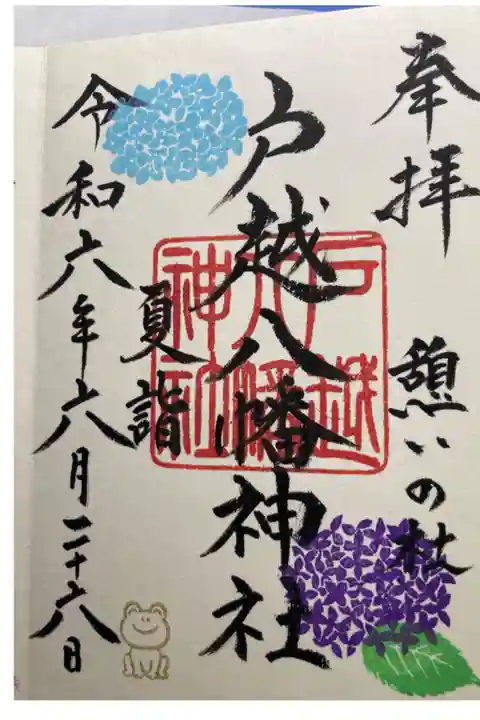 奉拝
憩いの杜
戸越八幡神社
戸越
八幡
神社
夏詣
令和六年六月二十六日